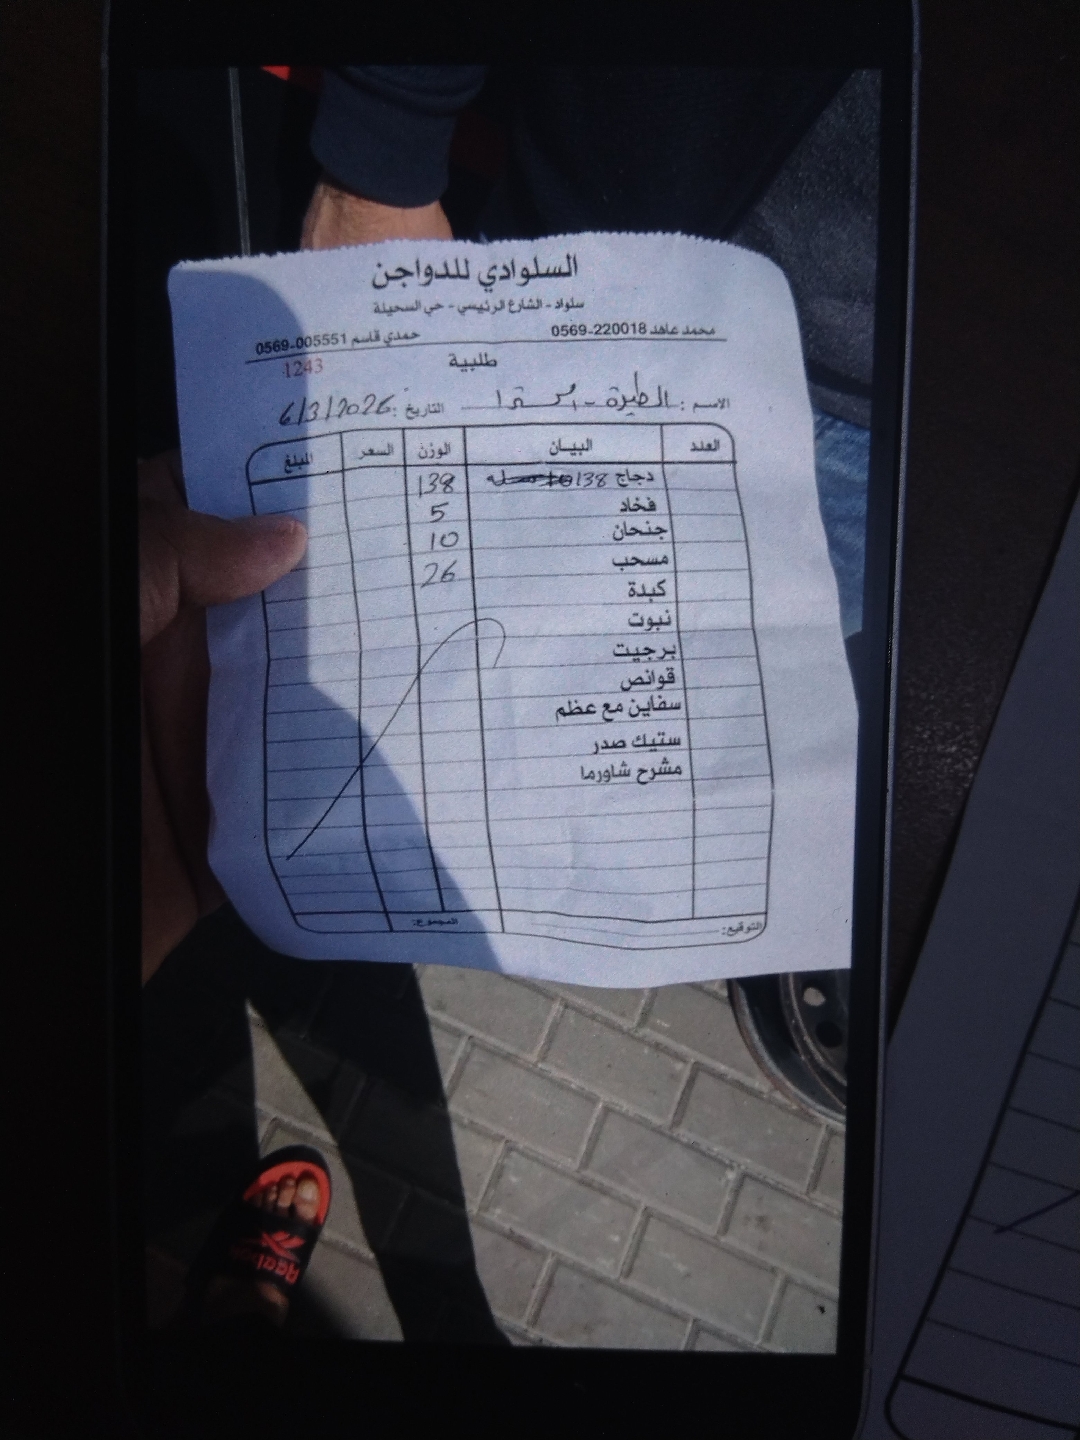 السلوادي للدواجن
سلواد - الشارع الرئيسي - حي السحيلة
محمد عاهد 220018-0569 حمدي قاسم 005551-0569
طلبية
1243
الاسم : الطيرة - التاريخ : 6/3/2026
العدد البيـــان الوزن السعر المبلغ
دجاج 138 138
فخاد 5
جنحان 10
مسحب 26
كبدة
نبوت
برجيت
قوانص
سفاين مع عظم
ستيك صدر
مشرح شاورما
التوقيع: المجموع:
Reebok